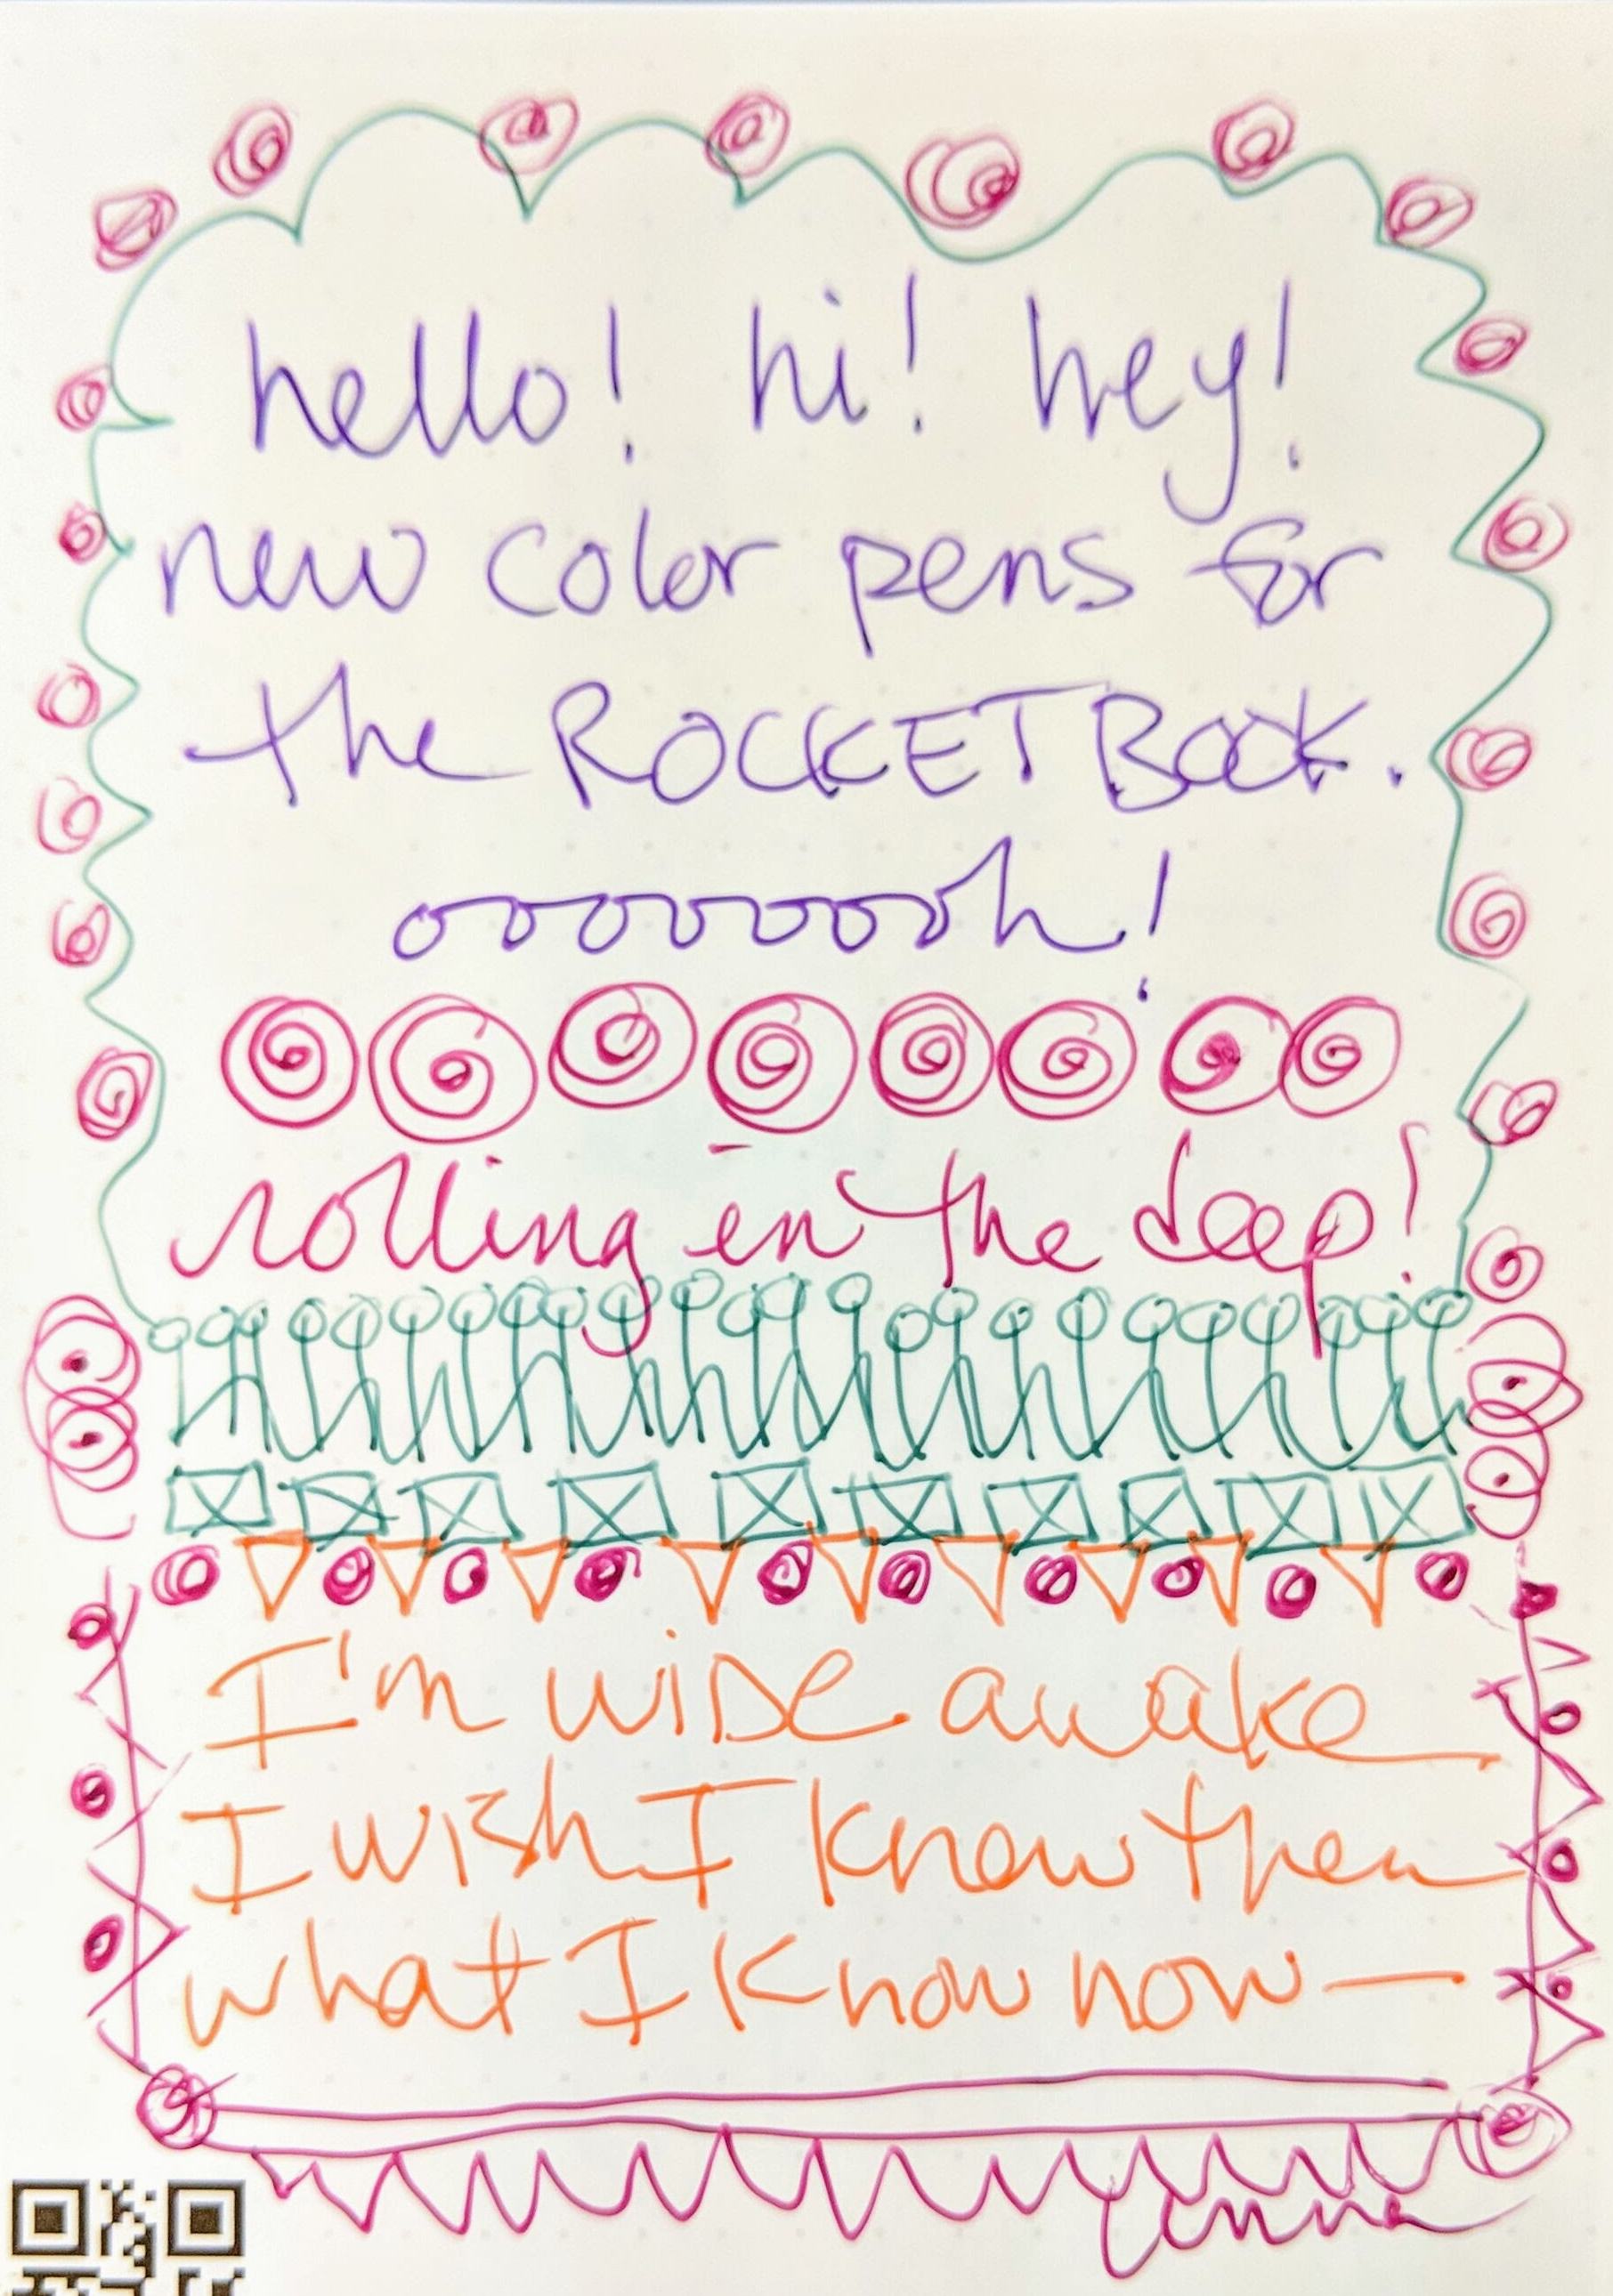 hello! hi! hey!
new color pens for
the ROCKETBOOK.
oooooooh!
rolling in the deep!
I'm wide awake
I wish I knew then
what I know now—